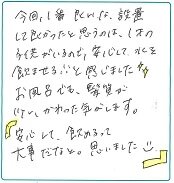 今回、1番良いな、設置
して良かったと思うのは、
子供がいるので、安心して水を
飲ませる
と感じました
お風呂でも、髪質が
かわった気がします。
安心して、飲めるって
大事だなと。思いました